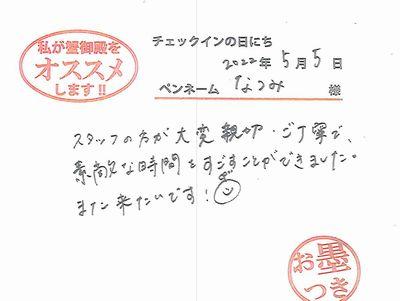 私が蟹御殿を
オススメ
します!!
チェックインの日にち
2022年 5月 5日
ペンネーム なつみ 様
スタッフの方が大変親切・ご丁寧で、
素敵な時間をすごすことができました。
また来たいです!
お墨
つき